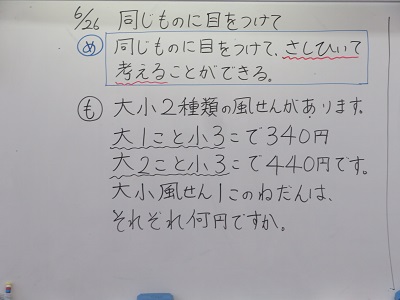 6/26 同じものに目をつけて
め 同じものに目をつけて、さしひいて
考えることができる。
も 大小2種類の風せんがあります。
大1こと小3こで340円
大2こと小3こで440円です。
大小風せん1このねだんは、
それぞれ何円ですか。